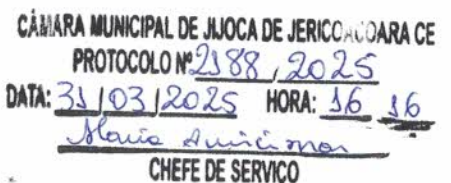 CÂMARA MUNICIPAL DE JIJOCA DE JERICOACOARA CE
PROTOCOLO Nº 2188, 2025
DATA: 31/03/2025 HORA: 16 16
Maria
CHEFE DE SERVICO